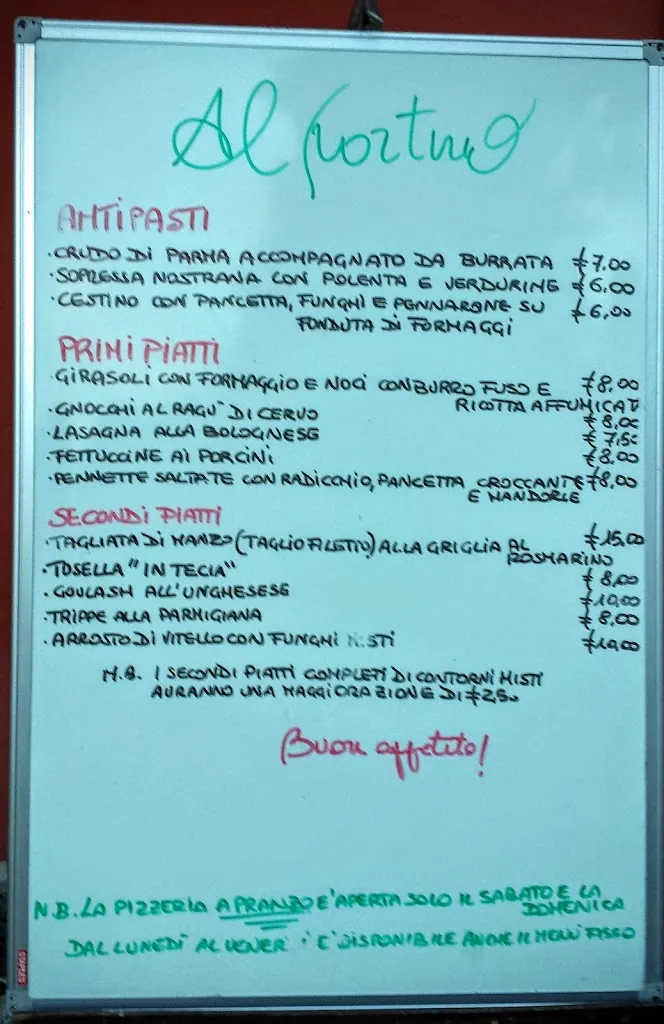 Al Portico
ANTIPASTI
·CRUDO DI PARMA ACCOMPAGNATO DA BURRATA €7.00
·SOPRESSA NOSTRANA CON POLENTA E VERDURINE €6.00
·CESTINO CON PANCETTA, FUNGHI E PENNARONE SU €6,00
FONDUTA DI FORMAGGI
PRIMI PIATTI
·GIRASOLI CON FORMAGGIO E NOCI CON BURRO FUSO E €8.00
RICOTTA AFFUMICAT
·GNOCCHI AL RAGU' DI CERVO €8,00
·LASAGNA ALLA BOLOGNESE €7,50
·FETTUCCINE AI PORCINI €8.00
·PENNETTE SALTATE CON RADICCHIO, PANCETTA CROCCANTE €8,00
E MANDORLE
SECONDI PIATTI
·TAGLIATA DI MANZO (TAGLIO FILETTO) ALLA GRIGLIA AL €15,00
ROSMARINO
·TOSELLA "IN TECIA" €8,00
·GOULASH ALL'UNGHESESE €10,00
·TRIPPE ALLA PARMIGIANA €8,00
·ARROSTO DI VITELLO CON FUNGHI MISTI
N.B. I SECONDI PIATTI COMPLETI DI CONTORNI MISTI
AURANNO UNA MAGGIORAZIONE DI €2,50
Buon appetito!
N.B. LA PIZZERIA A PRANZO E' APERTA SOLO IL SABATO E LA
DOMENICA
DAL LUNEDI' AL VENER I E' DISPONIBILE ANCHE IL MENU FISSO
STAPLES